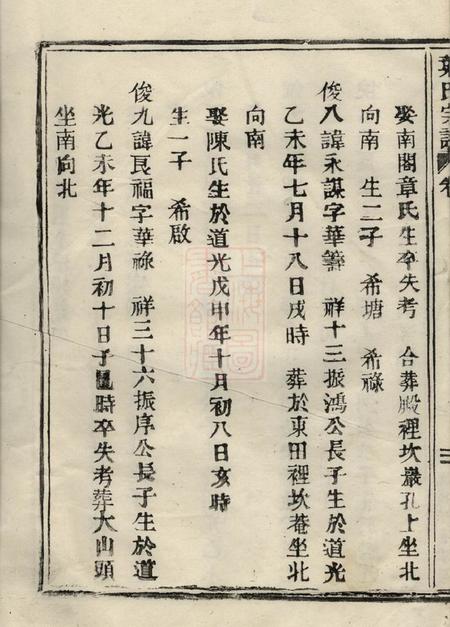 葉氏宗譜 卷
娶南閣章氏生卒失考 合葬殿裡坎巖孔上坐北
向南 生二子 希塘 希祿
俊八諱永謀字華籌 祥十三振鴻公長子生於道光
乙未年七月十八日戌時 葬於東田裡坎菴坐北
向南
娶陳氏生於道光戊申年十月初八日亥時
生一子 希啟
俊九諱良福字華祿 祥三十六振序公長子生於道
光乙未年十二月初十日子時卒失考葬大山頭
坐南向北